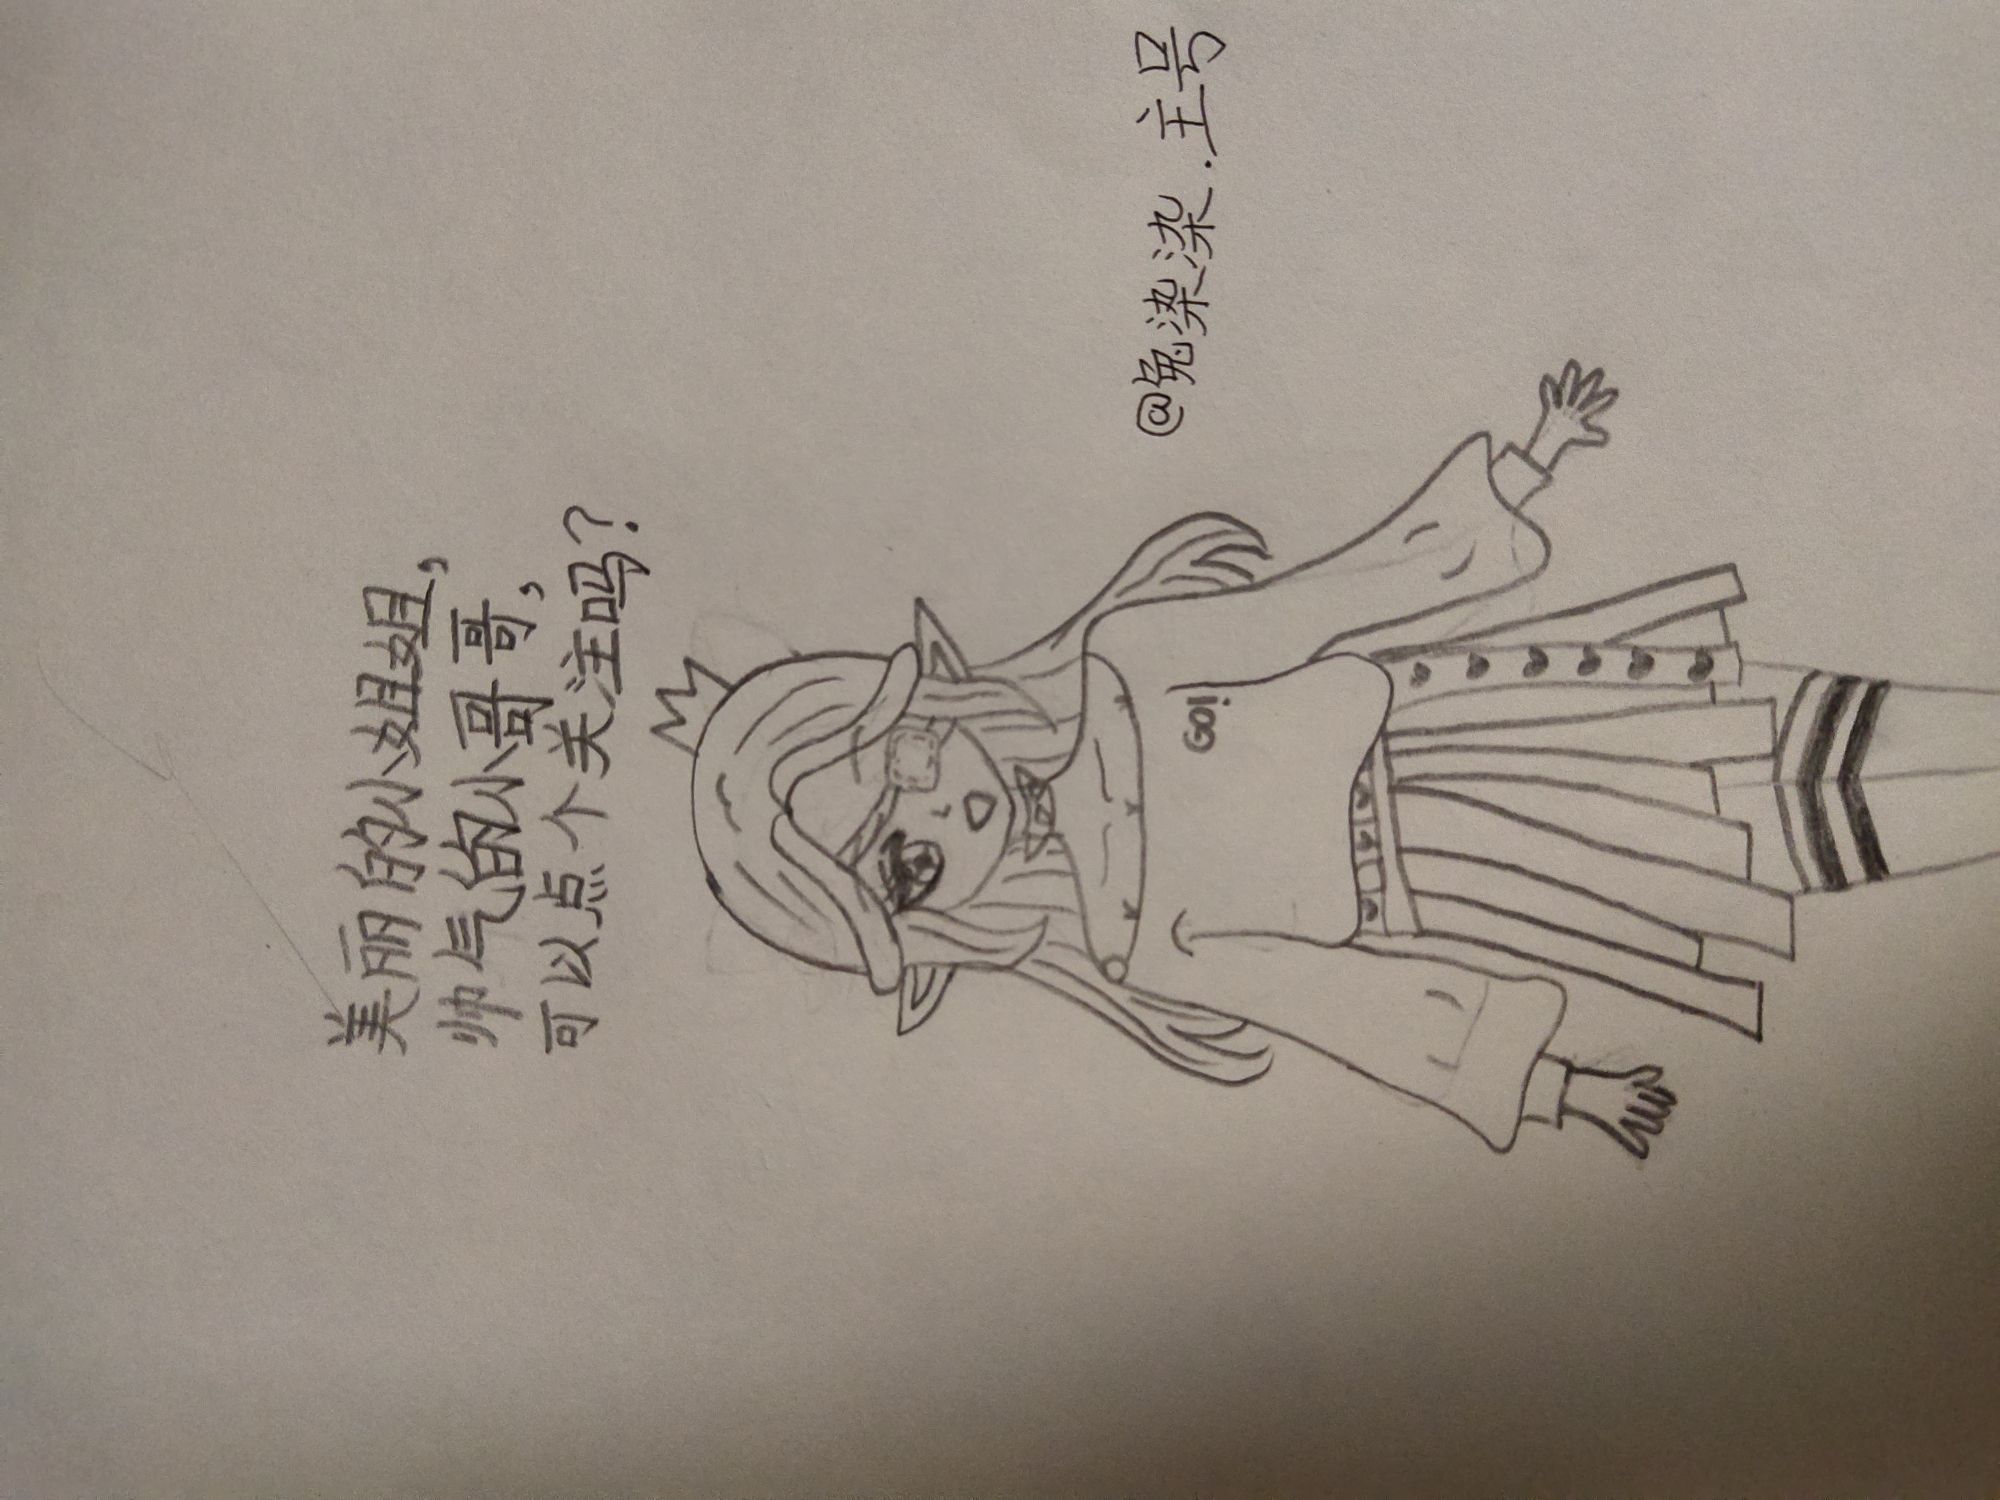 美丽的小姐姐，
帅气的小哥哥，
可以点个关注吗？
@兔染染.主号
Go!